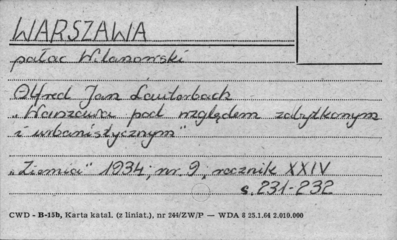 WARSZAWA
pałac Wilanowski
Alfred Jan Lauterbach
"Warszawa pod względem zabytkowym
i urbanistycznym"
"Ziemia" 1934, nr. 9, rocznik XXIV
s. 231-232
CWD - B-15b, Karta katal. (z liniat.), nr 244/ZW/P — WDA z 25.1.64 2.010.000